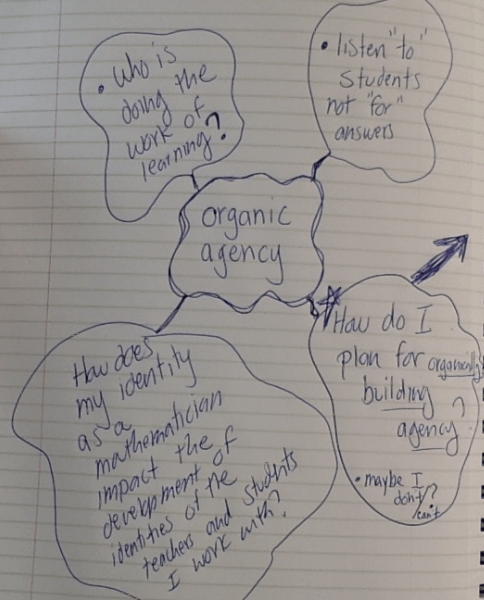 • Who is
doing the
work of
learning?
• listen "to"
students
not "for"
answers
organic
agency
How do I
plan for organically
building
agency?
• maybe I
don't?
/can't
How does
my identity
as a
mathematician
impact the
development of
identities of the
teachers and students
I work with?